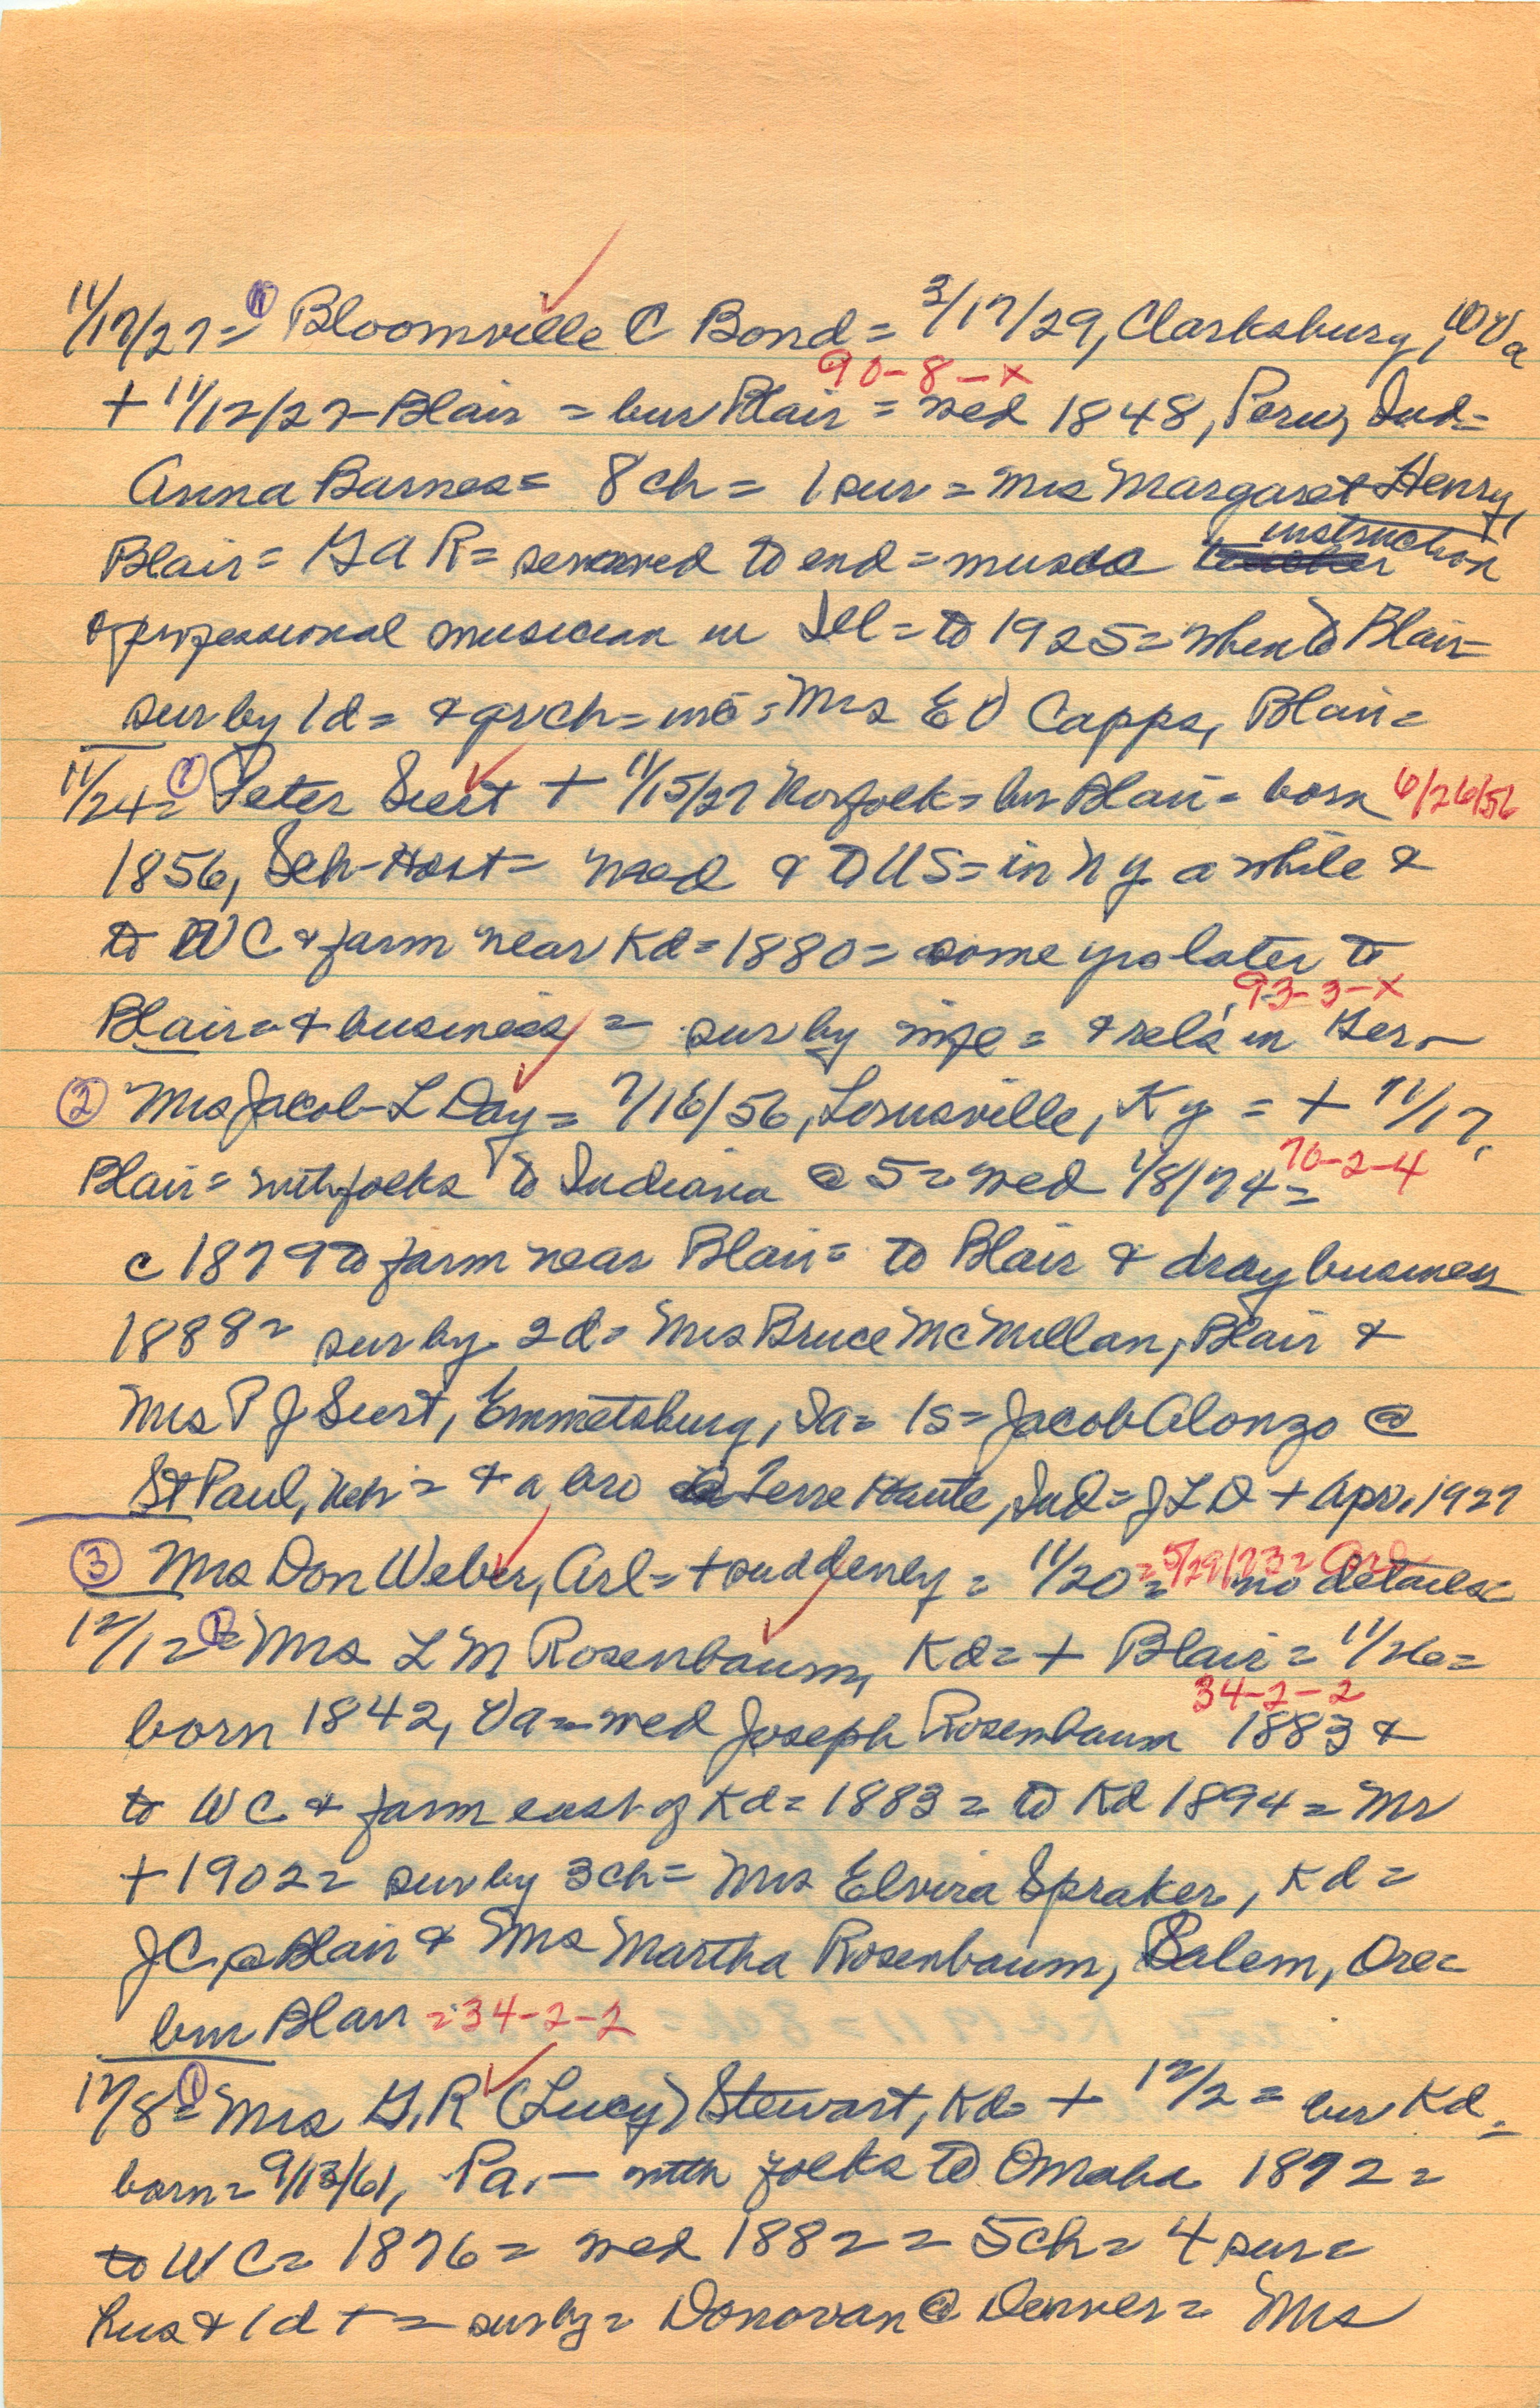 11/17/27= ① Bloomville C Bond = 3/17/29, Clarksburg, W Va
90-8-x
+ 11/12/27 Blair = bur Blair = wed 1848, Peru, Ind=
Anna Barnes= 8 ch = 1 sur = Mrs Margaret Henry,
instruction
Blair = G A R = served to end = music teacher
& professional musician in Ill = to 1925 = when to Blair=
sur by 1 d = & gr ch = inc = Mrs E O Capps, Blair=
11/24= ① Peter Siert + 11/15/27 Norfolk = bur Blair = born 6/26/56
1856, Sch-Host = wed & to US = in N Y a while &
to W C & farm near Kd = 1880 = some yrs later to
93-3-x
Blair = & business = sur by wife = & rels in Ger -
② Mrs Jacob L Day = 7/16/56, Louisville, Ky = + 11/17,
70-2-4
Blair = with folks to Indiana @ 5 = wed 1/8/74 =
c 1879 to farm near Blair = to Blair & dray business
1888 = sur by 2 d = Mrs Bruce McMillan, Blair &
Mrs P J Siert, Emmetsburg, Ia = 1 s = Jacob Alonzo @
St Paul, Neb = & a bro @ Terre Haute, Ind = J L D + Apr. 1927
③ Mrs Don Weber, Arl = + suddenly = 11/20 = 5/29/23 = Arl no details=
12/1 = ① = Mrs L M Rosenbaum, Kd = + Blair = 11/26 =
34-2-2
born 1842, Va = wed Joseph Rosenbaum 1883 &
to W C & farm east of Kd = 1883 = to Kd 1894 = Mr
+ 1902 = sur by 3 ch = Mrs Elvira Spraker, Kd =
J C, @ Blair & Mrs Martha Rosenbaum, Salem, Ore=
bur Blair = 34-2-2
12/8 = ① Mrs G.R (Lucy) Stewart, Kd = + 12/2 = bur Kd =
born = 9/13/61, Pa. - with folks to Omaha 1872 =
to W C = 1876 = wed 1882 = 5 ch = 4 sur =
hus & 1 d + = sur by = Donovan @ Denver = Mrs